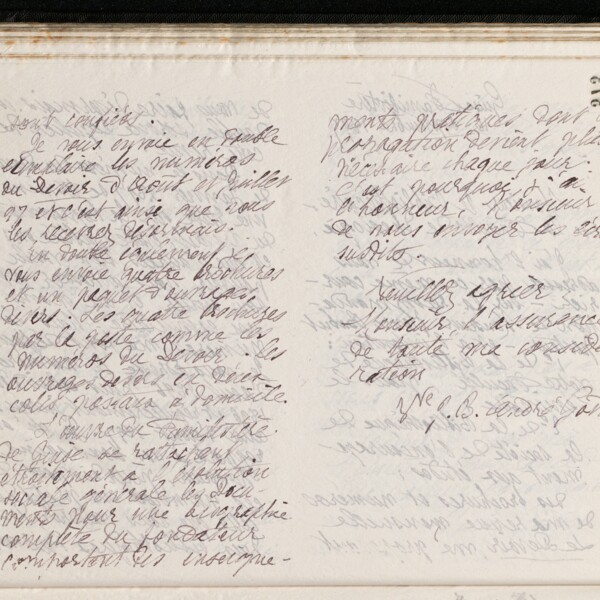 sont confiés.
Je vous envoie en double
exemplaire les numéros
du Devoir d'Août et Juillet
97 et c'est ainsi que vous
les recevrez désormais.
En double également je
vous envoie quatre brochures
et un paquet d'ouvrages
divers. Les quatre brochures
par la poste comme les
numéros du Devoir. Les
ouvrages divers en deux
colis postaux à domicile.
L'œuvre du Familistère
de Guise se rattachant
étroitement à l'évolution
sociale générale les docu
ments pour une biographie
complète du fondateur
comportent des enseigne-
ments pratiques dont la
propagation devient plus
nécessaire chaque jour.
C'est pourquoi j'ai
l'honneur, Monsieur
de vous envoyer les
susdits.
Veuillez agréer
Monsieur l'assurance
de toute ma considé
ration
Vve J. B. André Godin
212